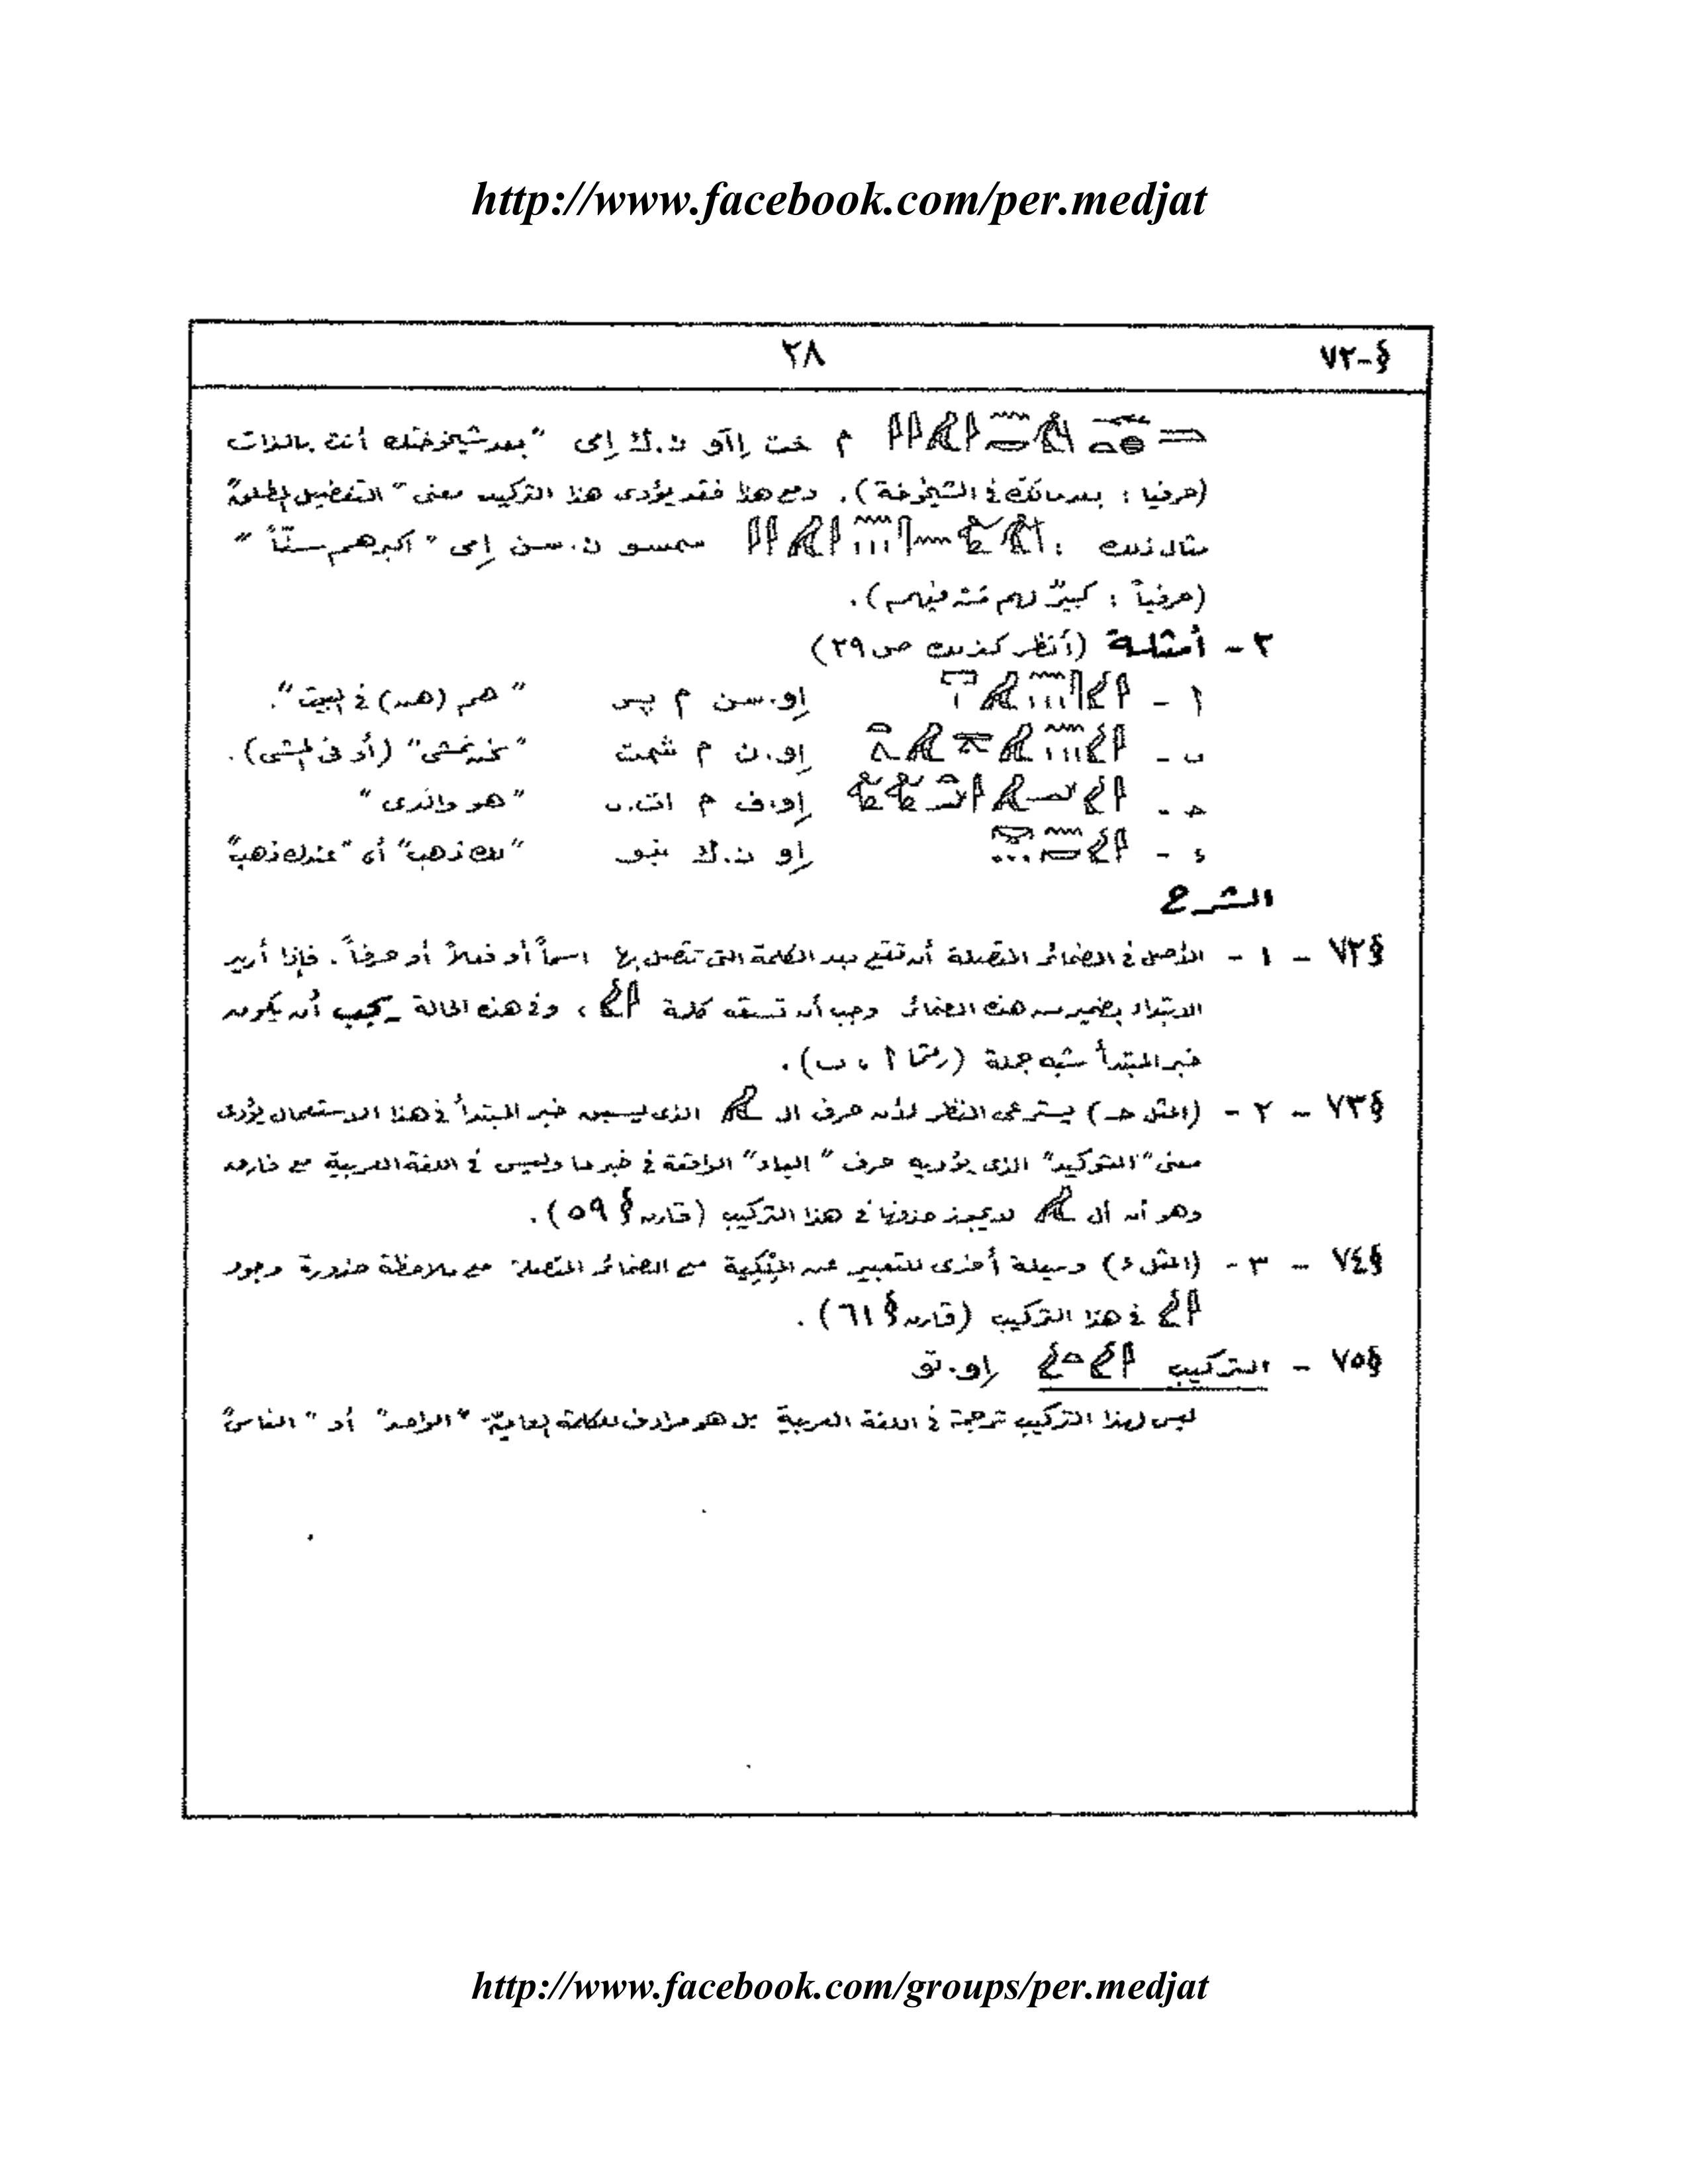 http://www.facebook.com/per.medjat
§-٧٢ ٢٨
م خت إآو ن.ك إمى "بعد شيخوختك أنت بالذات
(حرفيا : بعد مالك فى الشيخوخة). ومع هذا فقد يؤدى هذا التركيب معنى "التفضيل المطلق"
مثال ذلك : سمسو ن.سن إمى "اكبرهم سنّاً"
(حرفياً : كبيرٌ لهم فيهم).
٢ - أمثلة (أنظر كذلك ص ٢٩)
أ - إو.سن م پر "هم (هن) فى البيت".
ب - إو.ن م شمت "نحن نمشى" (أو فى المشى).
جـ - إو.ف م ات.ى "هو والدى"
د - إو ن.ك نبو "لك ذهب" أى "عندك ذهب"
الشرح
§٧٢ - ١ - الأصل فى الضمائر المتصلة أن تقع بعد الكلمة التى تتصل بها اسماً أو فعلاً أو حرفاً. فإذا أريد
الابتداء بضمير من هذه الضمائر وجب أن تسبقه كلمة ، وفى هذه الحالة يجب أن يكون
خبر المبتدأ شبه جملة (أ ، ب).
§٧٣ - ٢ - (المثل جـ) يسترعى النظر لأن حرف الـ الذى يسبق خبر المبتدأ فى هذا الاستعمال يؤدى
معنى "التوكيد" الذى يؤديه حرف "الباء" الواقعة فى خبر ما وليس فى اللغة العربية مع فارق
وهو أن الـ لا يجوز حذفها فى هذا التركيب (قارن § ٥٩).
§٧٤ - ٣ - (المثل د) وسيلة أخرى للتعبير عن المِلكية مع الضمائر المتصلة مع ملاحظة ضرورة وجود
فى هذا التركيب (قارن § ٦١).
§٧٥ - التركيب إو.تو
ليس لهذا التركيب ترجمة فى اللغة العربية بل هو مرادف للكلمة العاميّة "الواحد" أو "الناس"
http://www.facebook.com/groups/per.medjat